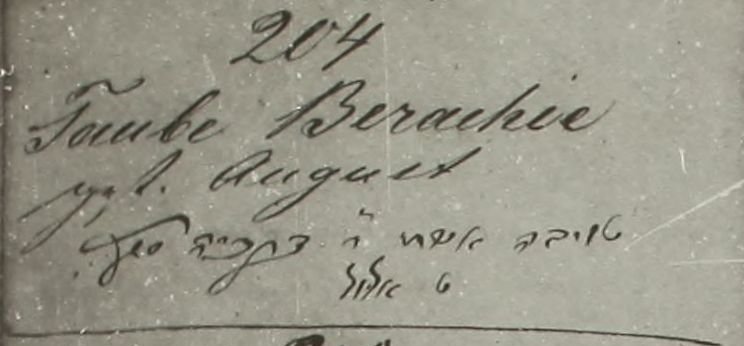 204
Taube Berachie
gest. August
טויבה אשת ר׳ ברכיה
ט אלול